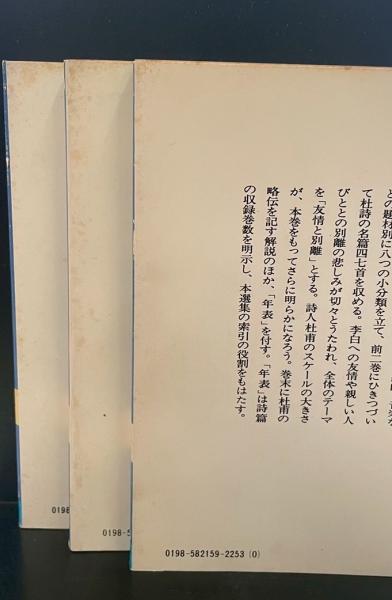 との題材別に八つの小分類を立て、前二巻にひきつづい
て杜詩の名篇四七首を収める。李白への友情や親しい人
びととの別離の悲しみが切々とうたわれ、全体のテーマ
を「友情と別離」とする。詩人杜甫のスケールの大きさ
が、本巻をもってさらに明らかになろう。巻末に杜甫の
略伝を記す解説のほか、「年表」を付す。「年表」は詩篇
の収録巻数を明示し、本選集の索引の役割をもはたす。
0198-582159-2253 (0)
0198-5
0198